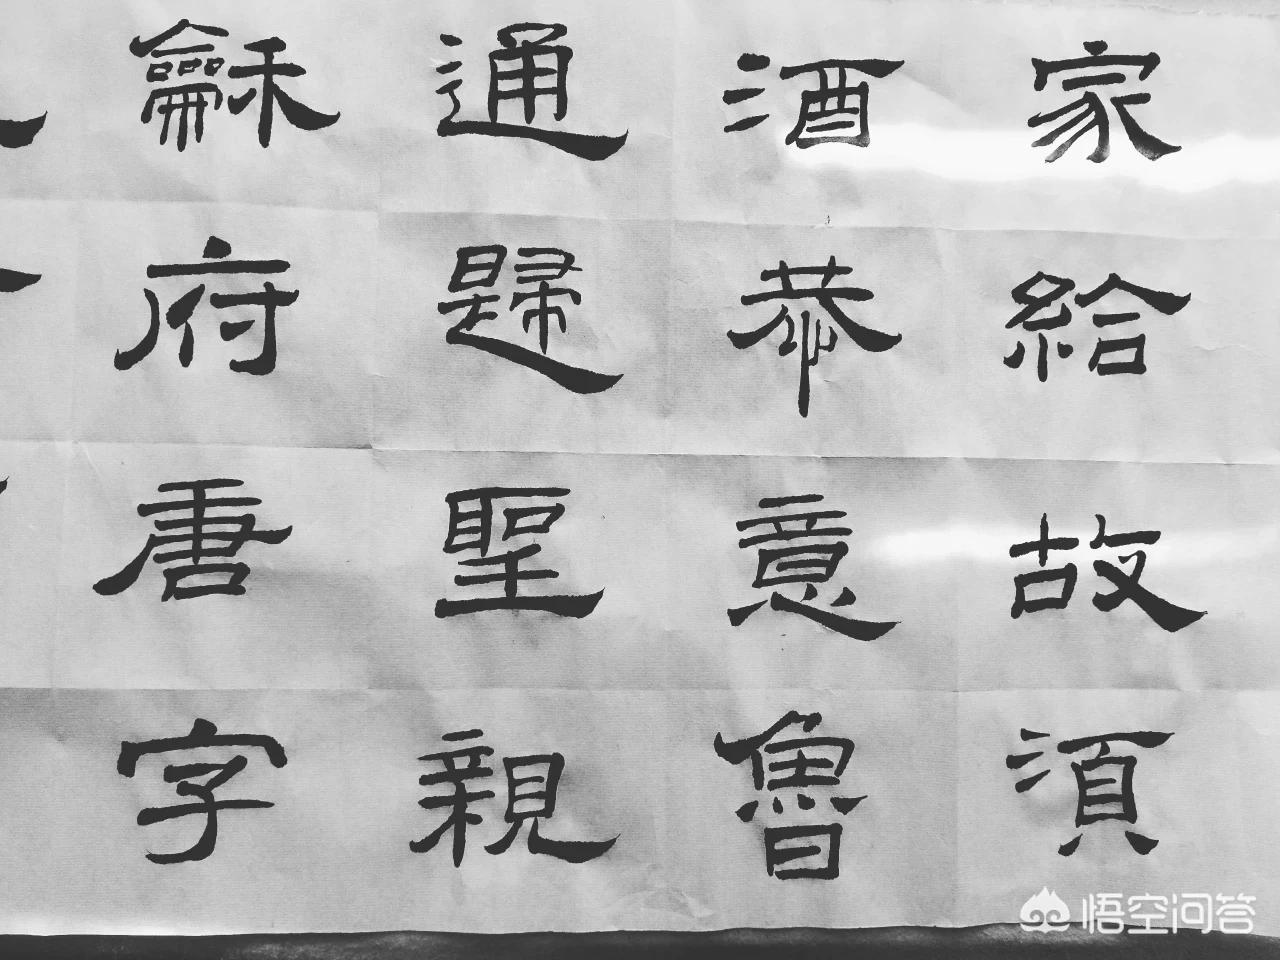 家給故須
酒恭意魯
通歸聖親
龢府唐字
悟空问答